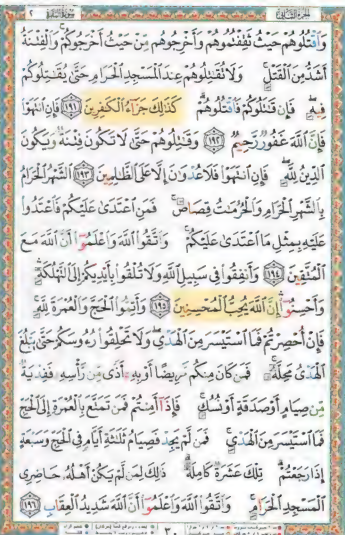 الجزء الثانی سورة البقرة ٢
وَاقْتُلُوهُمْ حَيْثُ ثَقِفْتُمُوهُمْ وَأَخْرِجُوهُم مِّنْ حَيْثُ أَخْرَجُوكُمْ وَالْفِتْنَةُ
أَشَدُّ مِنَ الْقَتْلِ وَلَا تُقَٰتِلُوهُمْ عِندَ الْمَسْجِدِ الْحَرَامِ حَتَّىٰ يُقَٰتِلُوكُمْ
فِيهِ فَإِن قَٰتَلُوكُمْ فَاقْتُلُوهُمْ كَذَٰلِكَ جَزَآءُ الْكَٰفِرِينَ ۝١٩١ فَإِنِ انتَهَوْا
فَإِنَّ اللَّهَ غَفُورٌ رَّحِيمٌ ۝١٩٢ وَقَٰتِلُوهُمْ حَتَّىٰ لَا تَكُونَ فِتْنَةٌ وَيَكُونَ
الدِّينُ لِلَّهِ فَإِنِ انتَهَوْا فَلَا عُدْوَٰنَ إِلَّا عَلَى الظَّٰلِمِينَ ۝١٩٣ الشَّهْرُ الْحَرَامُ
بِالشَّهْرِ الْحَرَامِ وَالْحُرُمَٰتُ قِصَاصٌ فَمَنِ اعْتَدَىٰ عَلَيْكُمْ فَاعْتَدُوا
عَلَيْهِ بِمِثْلِ مَا اعْتَدَىٰ عَلَيْكُمْ وَاتَّقُوا اللَّهَ وَاعْلَمُوٓا أَنَّ اللَّهَ مَعَ
الْمُتَّقِينَ ۝١٩٤ وَأَنفِقُوا فِي سَبِيلِ اللَّهِ وَلَا تُلْقُوا بِأَيْدِيكُمْ إِلَى التَّهْلُكَةِ
وَأَحْسِنُوٓا إِنَّ اللَّهَ يُحِبُّ الْمُحْسِنِينَ ۝١٩٥ وَأَتِمُّوا الْحَجَّ وَالْعُمْرَةَ لِلَّهِ
فَإِنْ أُحْصِرْتُمْ فَمَا اسْتَيْسَرَ مِنَ الْهَدْيِ وَلَا تَحْلِقُوا رُءُوسَكُمْ حَتَّىٰ يَبْلُغَ
الْهَدْيُ مَحِلَّهُ فَمَن كَانَ مِنكُم مَّرِيضًا أَوْ بِهِٓ أَذًى مِّن رَّأْسِهِ فَفِدْيَةٌ
مِّن صِيَامٍ أَوْ صَدَقَةٍ أَوْ نُسُكٍ فَإِذَآ أَمِنتُمْ فَمَن تَمَتَّعَ بِالْعُمْرَةِ إِلَى الْحَجِّ
فَمَا اسْتَيْسَرَ مِنَ الْهَدْيِ فَمَن لَّمْ يَجِدْ فَصِيَامُ ثَلَٰثَةِ أَيَّامٍ فِي الْحَجِّ وَسَبْعَةٍ
إِذَا رَجَعْتُمْ تِلْكَ عَشَرَةٌ كَامِلَةٌ ذَٰلِكَ لِمَن لَّمْ يَكُنْ أَهْلُهُ حَاضِرِي
الْمَسْجِدِ الْحَرَامِ وَاتَّقُوا اللَّهَ وَاعْلَمُوٓا أَنَّ اللَّهَ شَدِيدُ الْعِقَابِ ۝١٩٦
٣٠